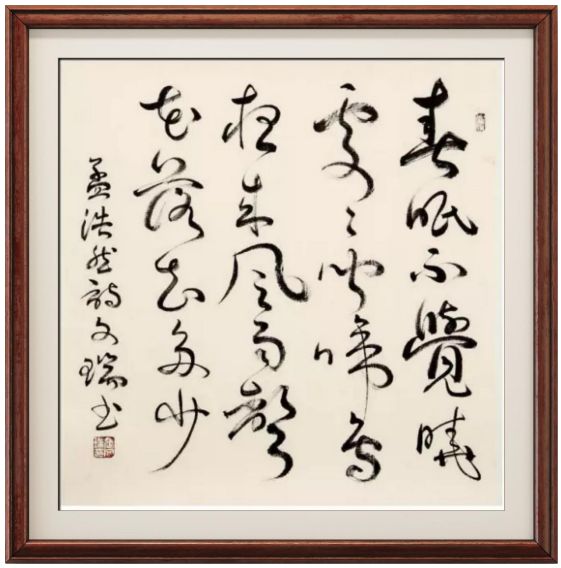 春眠不覺曉
處々聞啼鳥
夜來風雨聲
花落知多少
孟浩然詩文瑞書